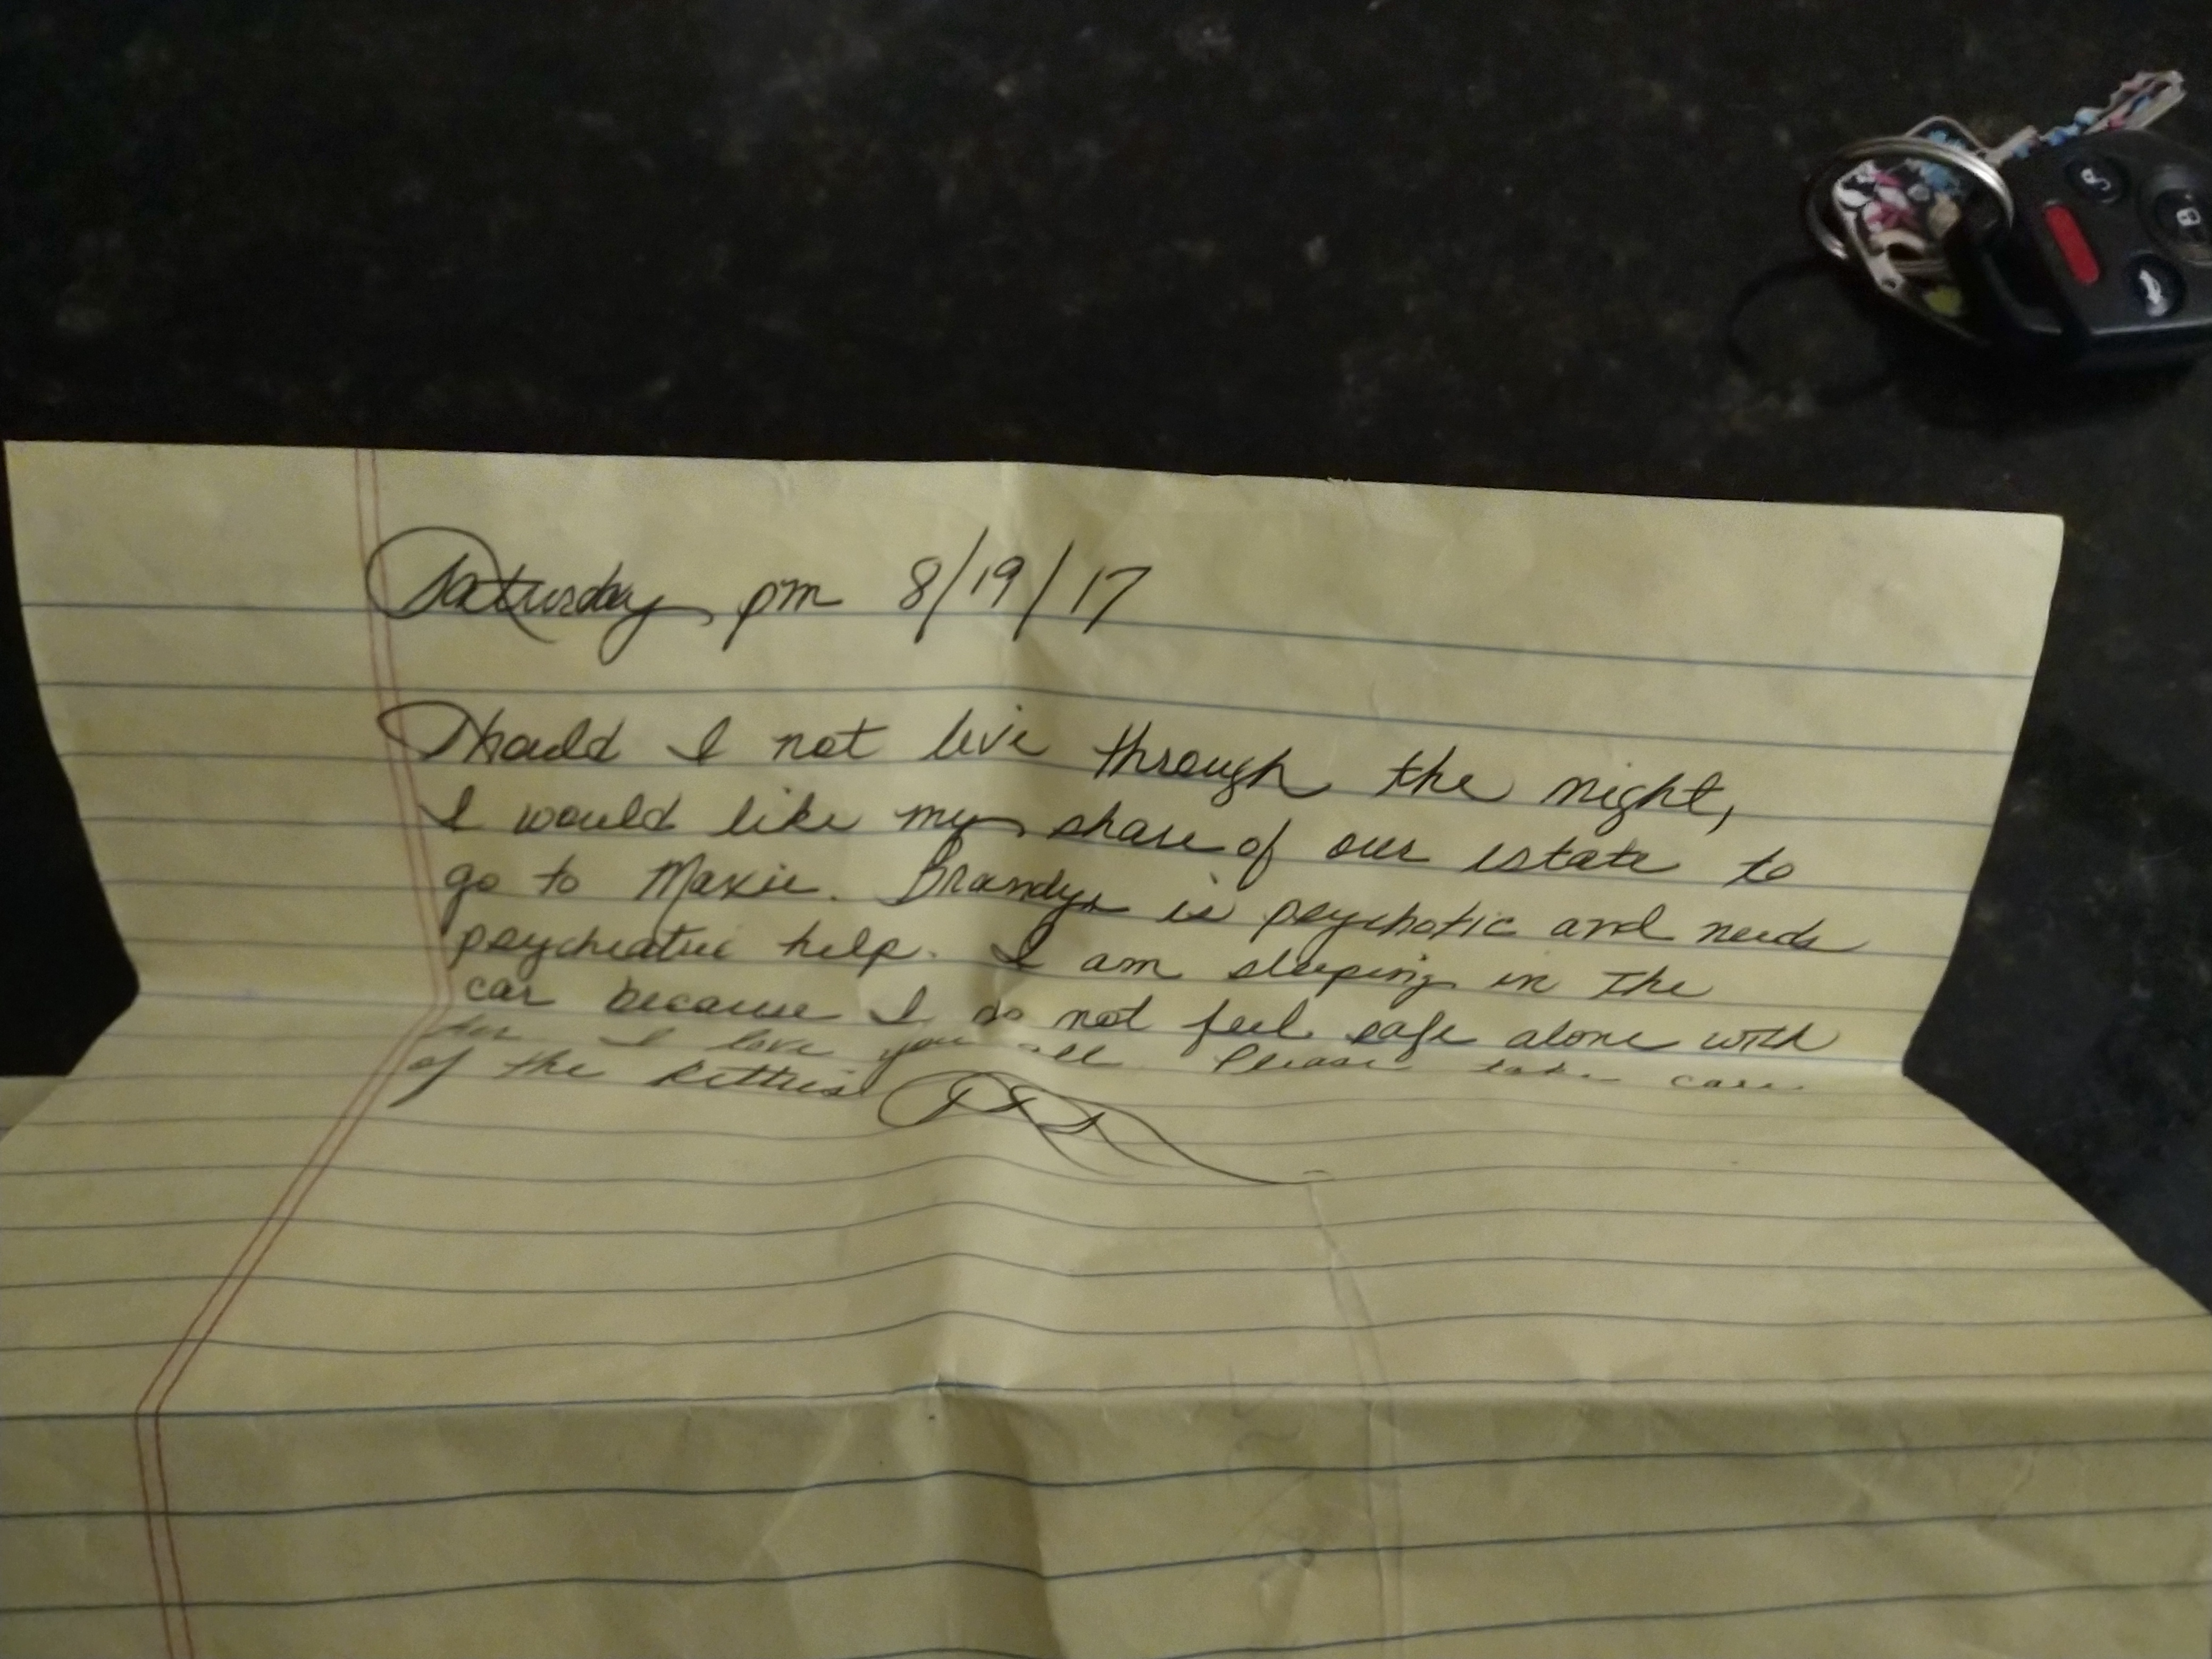 Saturday pm 8/19/17
Should I not live through the night,
I would like my share of our estate to
go to Maxie. Brandyn is psychotic and need
psychiatric help. I am sleeping in the
car because I do not feel safe alone with
him I love you all. Please take care
of the kitties!